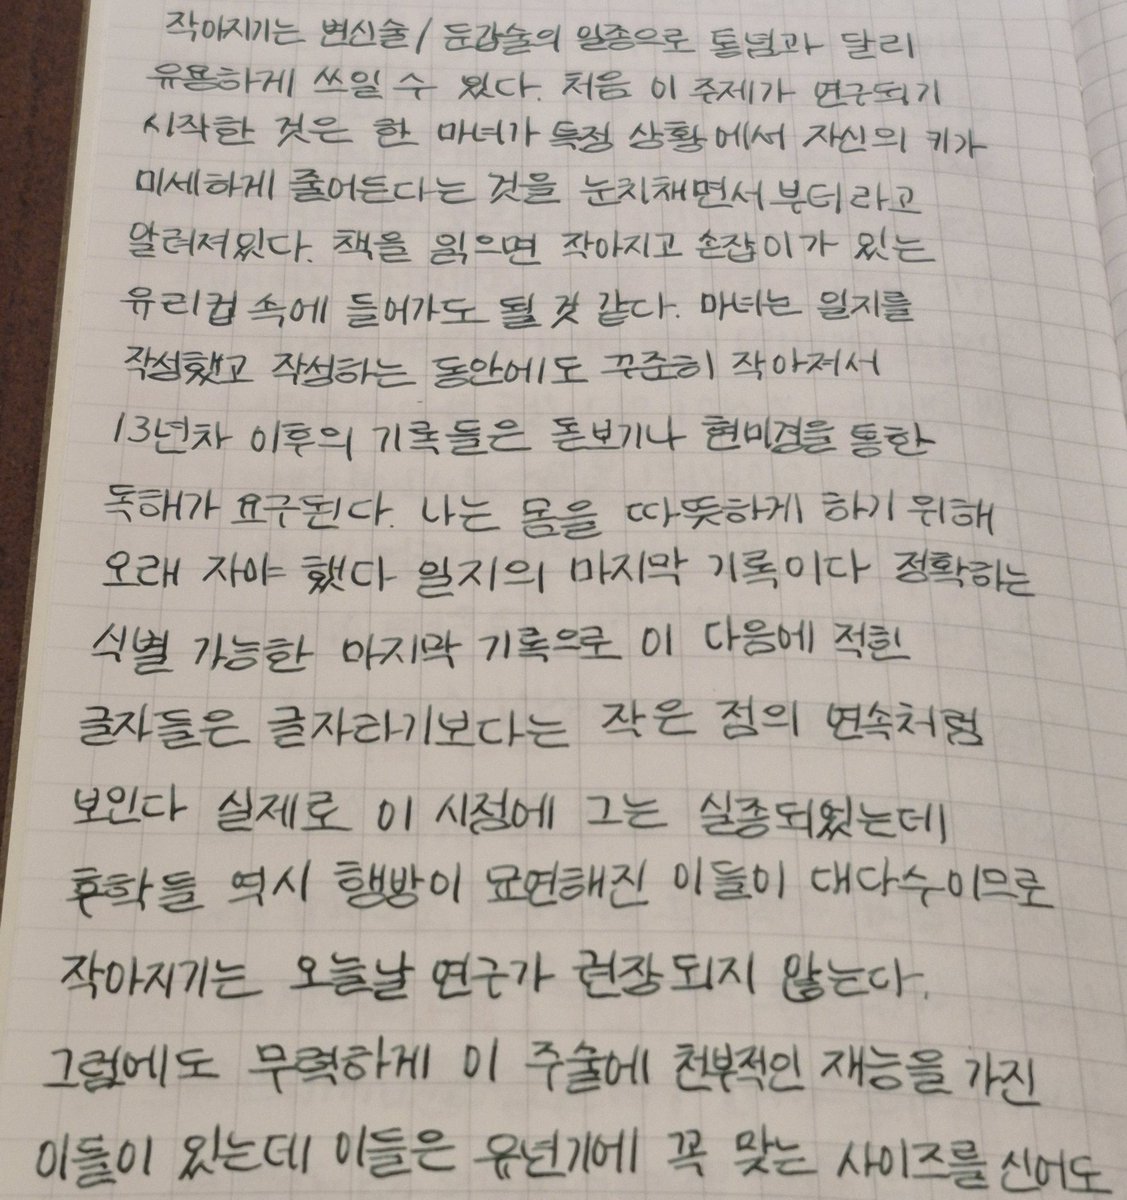 작아지기는 변신술/둔갑술의 일종으로 통념과 달리
유용하게 쓰일 수 있다. 처음 이 주제가 연구되기
시작한 것은 한 마녀가 특정 상황에서 자신의 키가
미세하게 줄어든다는 것을 눈치채면서부터라고
알려져있다. 책을 읽으면 작아지고 손잡이가 있는
유리컵 속에 들어가도 될 것 같다. 마녀는 일지를
작성했고 작성하는 동안에도 꾸준히 작아져서
13년차 이후의 기록들은 돋보기나 현미경을 통한
독해가 요구된다. 나는 몸을 따뜻하게 하기 위해
오래 자야 했다 일지의 마지막 기록이다 정확하는
식별 가능한 마지막 기록으로 이 다음에 적힌
글자들은 글자라기보다는 작은 점의 연속처럼
보인다 실제로 이 시점에 그는 실종되었는데
후학들 역시 행방이 묘연해진 이들이 대다수이므로
작아지기는 오늘날 연구가 권장되지 않는다.
그럼에도 무력하게 이 주술에 천부적인 재능을 가진
이들이 있는데 이들은 유년기에 꼭 맞는 사이즈를 신어도